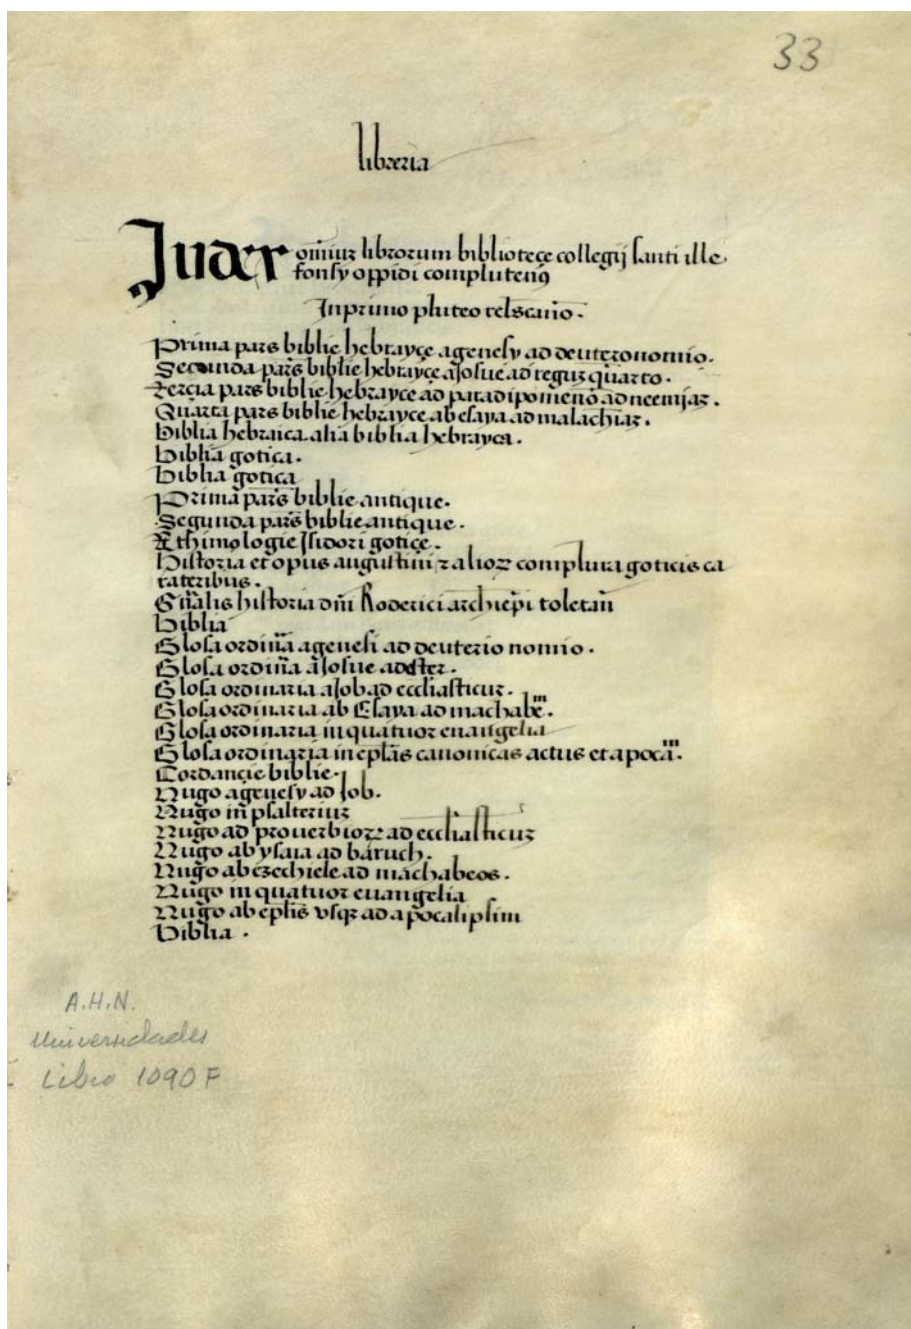 33
libreria
Index om̄iuz librorum bibliotece collegij santi ille
fonsy oppidi compluten̄
In primo pluteo
Prima pars biblie hebrayce a genesy ad deuteronomio.
Secunda pars biblie hebrayce a Josue ad reguz quarto.
Tercia pars biblie hebrayce ad paradipomenō ad neemijaz.
Quarta pars biblie hebrayce ab esaya ad malachiaz.
Biblia hebraica. alia biblia hebrayca.
Biblia gotica.
Biblia gotica
Prima pars biblie antique.
Segunda pars biblie antique.
Ethimologie Isidori gotice.
Historia et opus augustini ⁊ alioꝝ complura goticis ca
rateribus.
Gn̄alis historia dn̄i Roderici archiep̄i toletani
Biblia
Glosa ordin̄a a genesi ad deuterio nomio.
Glosa ordin̄a a Josue ad ester.
Glosa ordinaria a Job ad eccliasticuz.
Glosa ordinaria ab Esaya ad machabe͞.
Glosa ordinaria in quatuor euangelia
Glosa ordinaria in eplās canonicas actus et apoca͞.
Cordancie biblie.
Nugo a genesy ad Job.
Nugo in psalteriuz
Nugo ad prouerbioꝝ ad eccliasticuz
Nugo ab ysaia ad baruch.
Nugo ab ezechiele ad machabeos.
Nugo in quatuor euangelia
Nugo ab eplis̄ vsqꝫ ad apocalipsim
Biblia.
A.H.N.
Universidades
Libro 1090 F